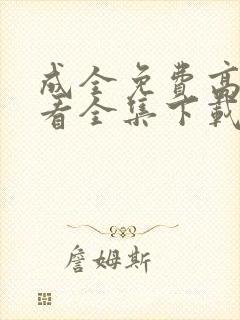 成全免费高
看全集下载
詹姆斯